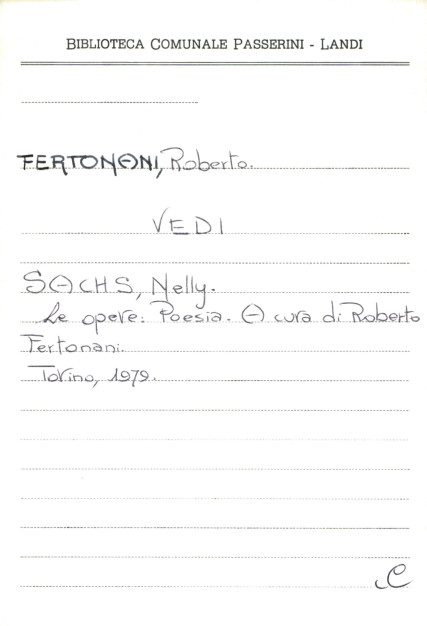 BIBLIOTECA COMUNALE PASSERINI - LANDI
FERTONANI, Roberto.
VEDI
SACHS, Nelly.
Le opere: Poesia. A cura di Roberto
Fertonani.
Torino, 1979.
C